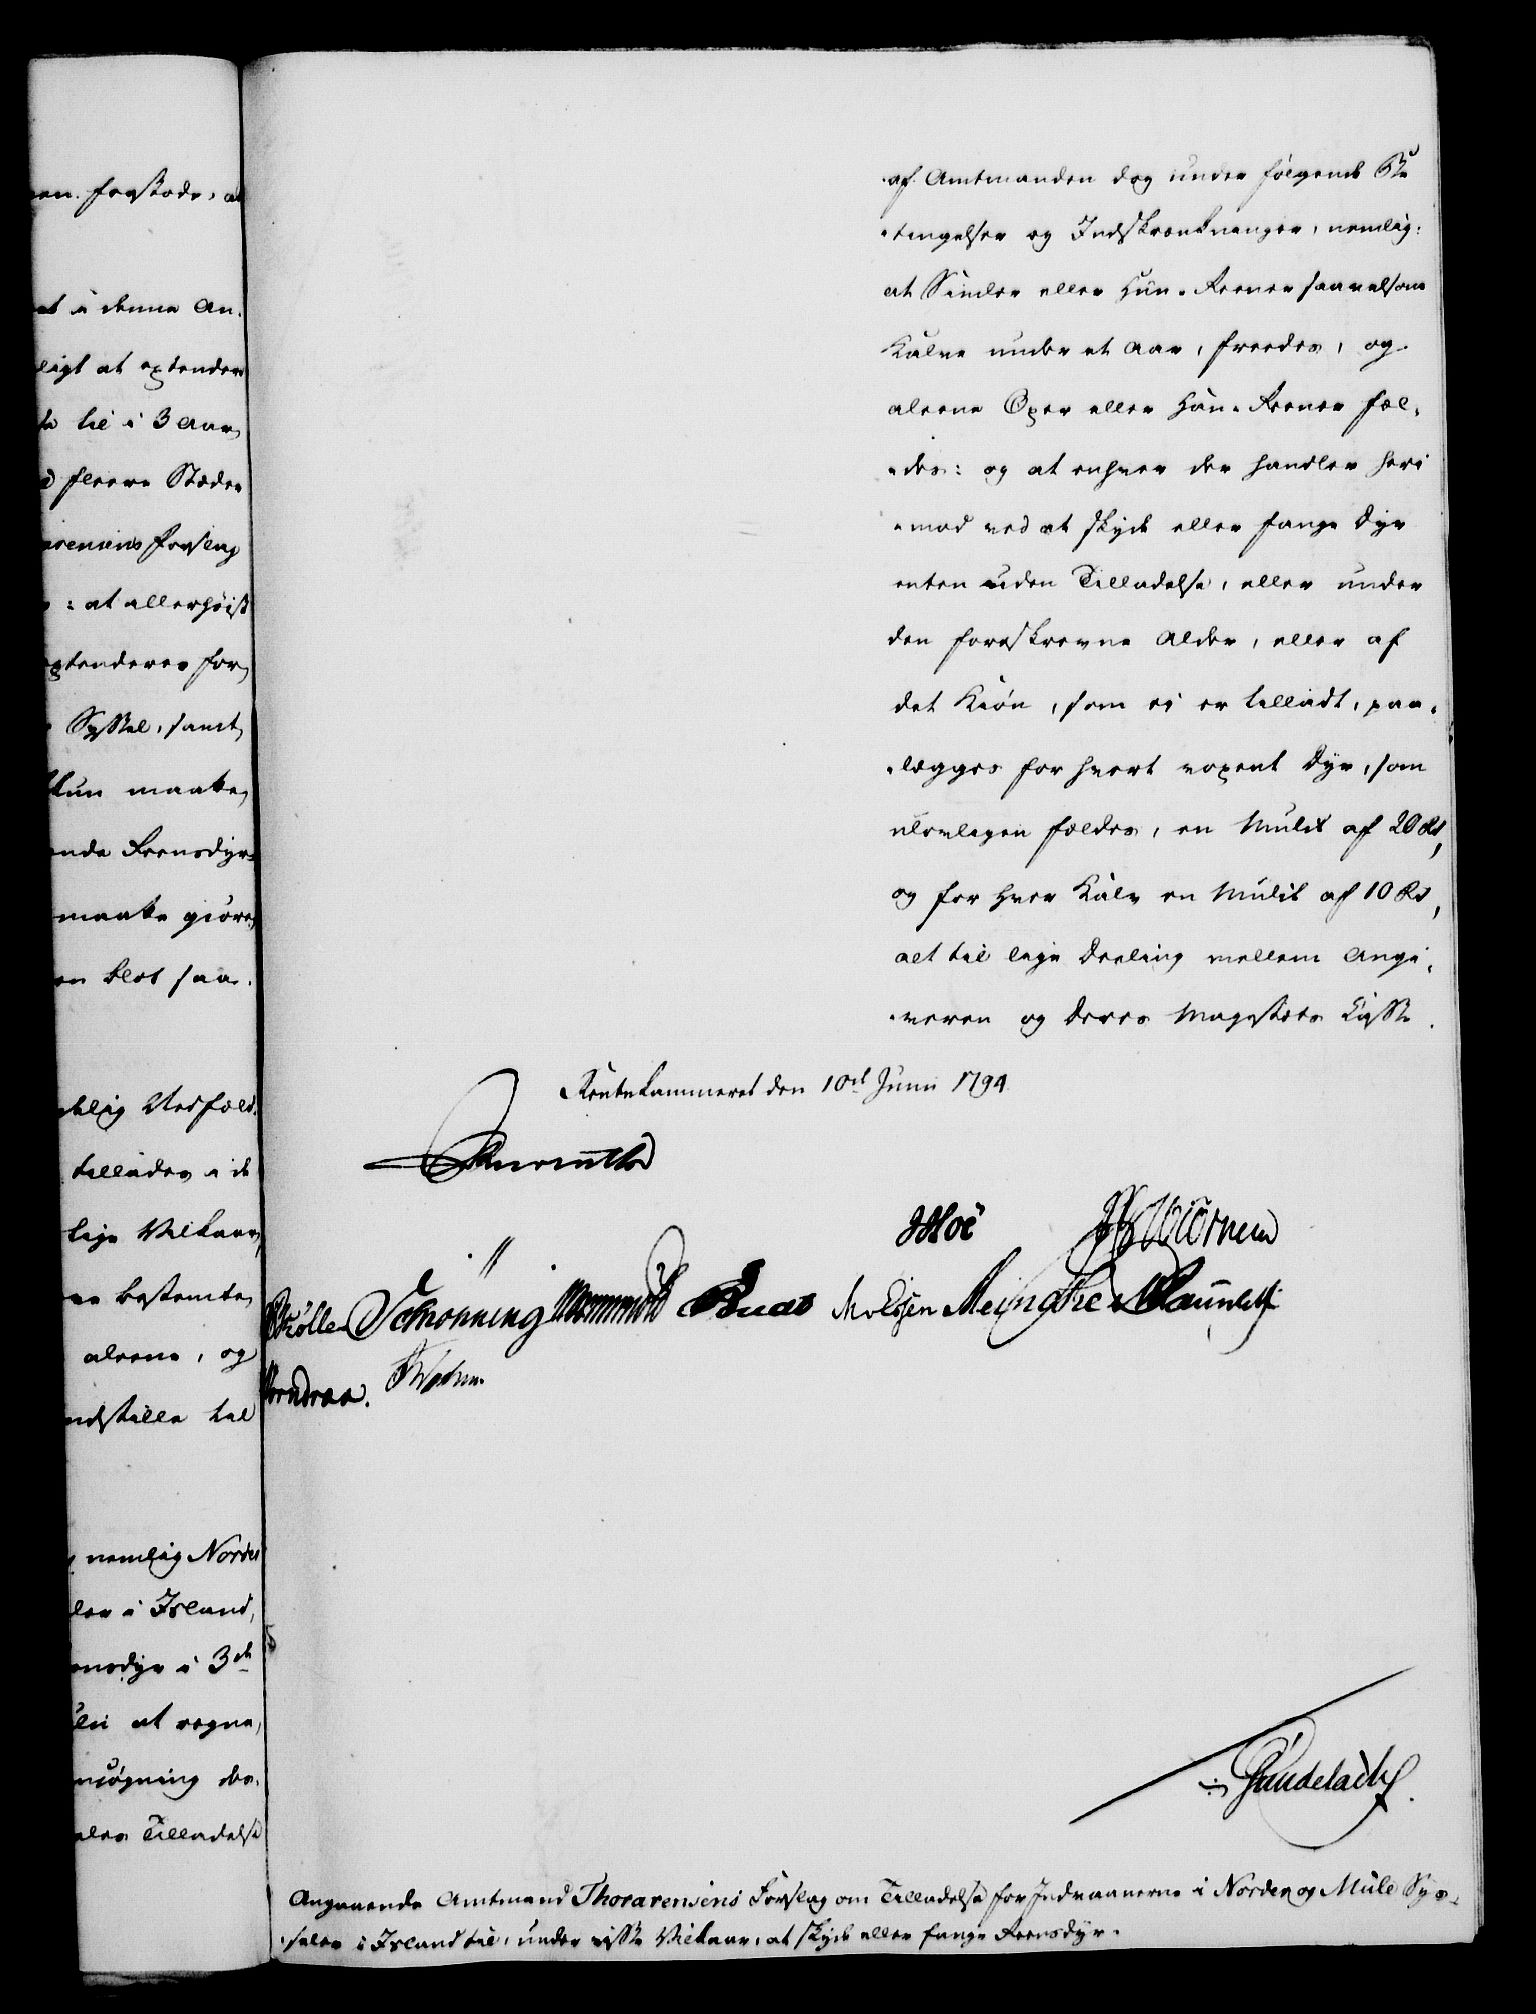 en. forstode, at
et i denne An-
ligt at extendere
til i 3 Aar,
fleere Stæder
arensens Forslag
: at allerhøist
extenderes for
Syssel, samt
kun maatte,
ende Reensdyr
maatte giøres
en blot saa-
tillades i de
lige Vilkaar,
bestemte,
aleene, og
indstille til
nemlig Norder
ler i Island,
ensdyr i 3de
at regne,
nsøgning des-
ales Tilladelse
af Amtmanden dog under følgende Be-
-tingelser og Indskrænkninger, nemlig:
at Simler eller Hun-Reener saavelsom
Kalve under et Aar, freedes, og
aleene Oxer eller Han-Reener fæl-
-des: og at enhver der handler heri
-mod ved at skyde eller fange Dyr
enten uden Tilladelse, eller under
den foreskrevne Alder, eller af
det Kiøn, som ei er tilladt, paa-
-lægges for hvert voxent Dyr, som
ulovligen fældes, en Mulct af 20 Rd,
og for hver Kalv en Mulct af 10 Rd,
alt til lige Deeling mellem Angi-
-veren og Deres Majestæts Casse.
Rentekammeret den 10de Junii 1794
JMoe Wiörnem
Schönning Wormskiold Buch M. Olsen Meinche
Gundelach.
Angaaende Amtmand Thorarensens Forslag om Tilladelse for Indvaanerne i Norder og Mule Sys-
-seler i Island til, under visse Vilkaar, at skyde eller fange Reensdyr.